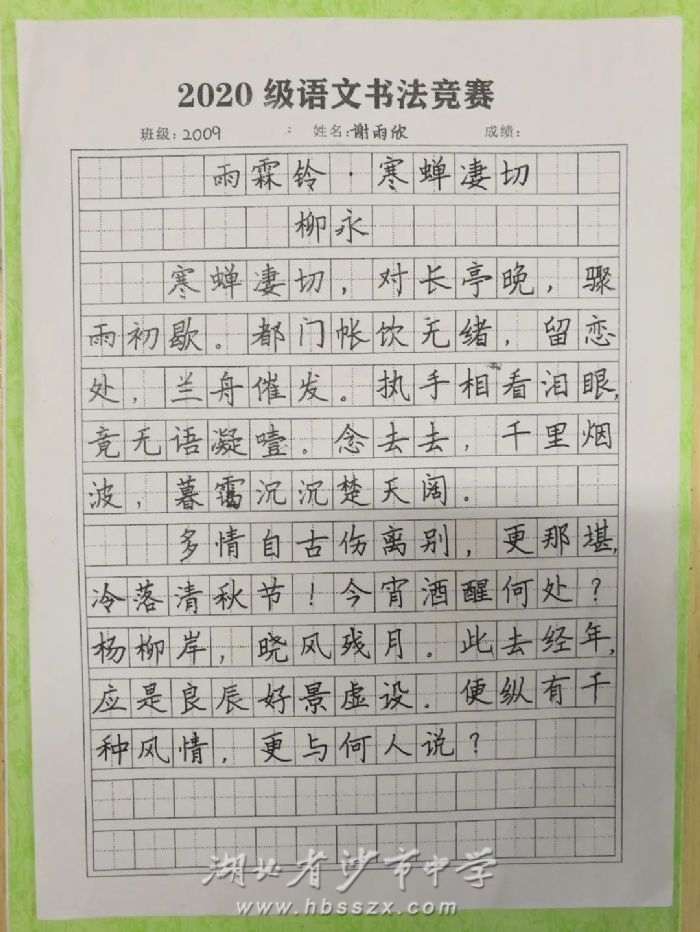 2020 级语文书法竞赛
班级: 2009 姓名: 谢雨欣 成绩:
雨霖铃·寒蝉凄切
柳永
寒蝉凄切，对长亭晚，骤
雨初歇。都门帐饮无绪，留恋
处，兰舟催发。执手相看泪眼，
竟无语凝噎。念去去，千里烟
波，暮霭沉沉楚天阔。
多情自古伤离别，更那堪，
冷落清秋节！今宵酒醒何处？
杨柳岸，晓风残月。此去经年，
应是良辰好景虚设。便纵有千
种风情，更与何人说？
湖北省沙市中学
www.hbsszx.com